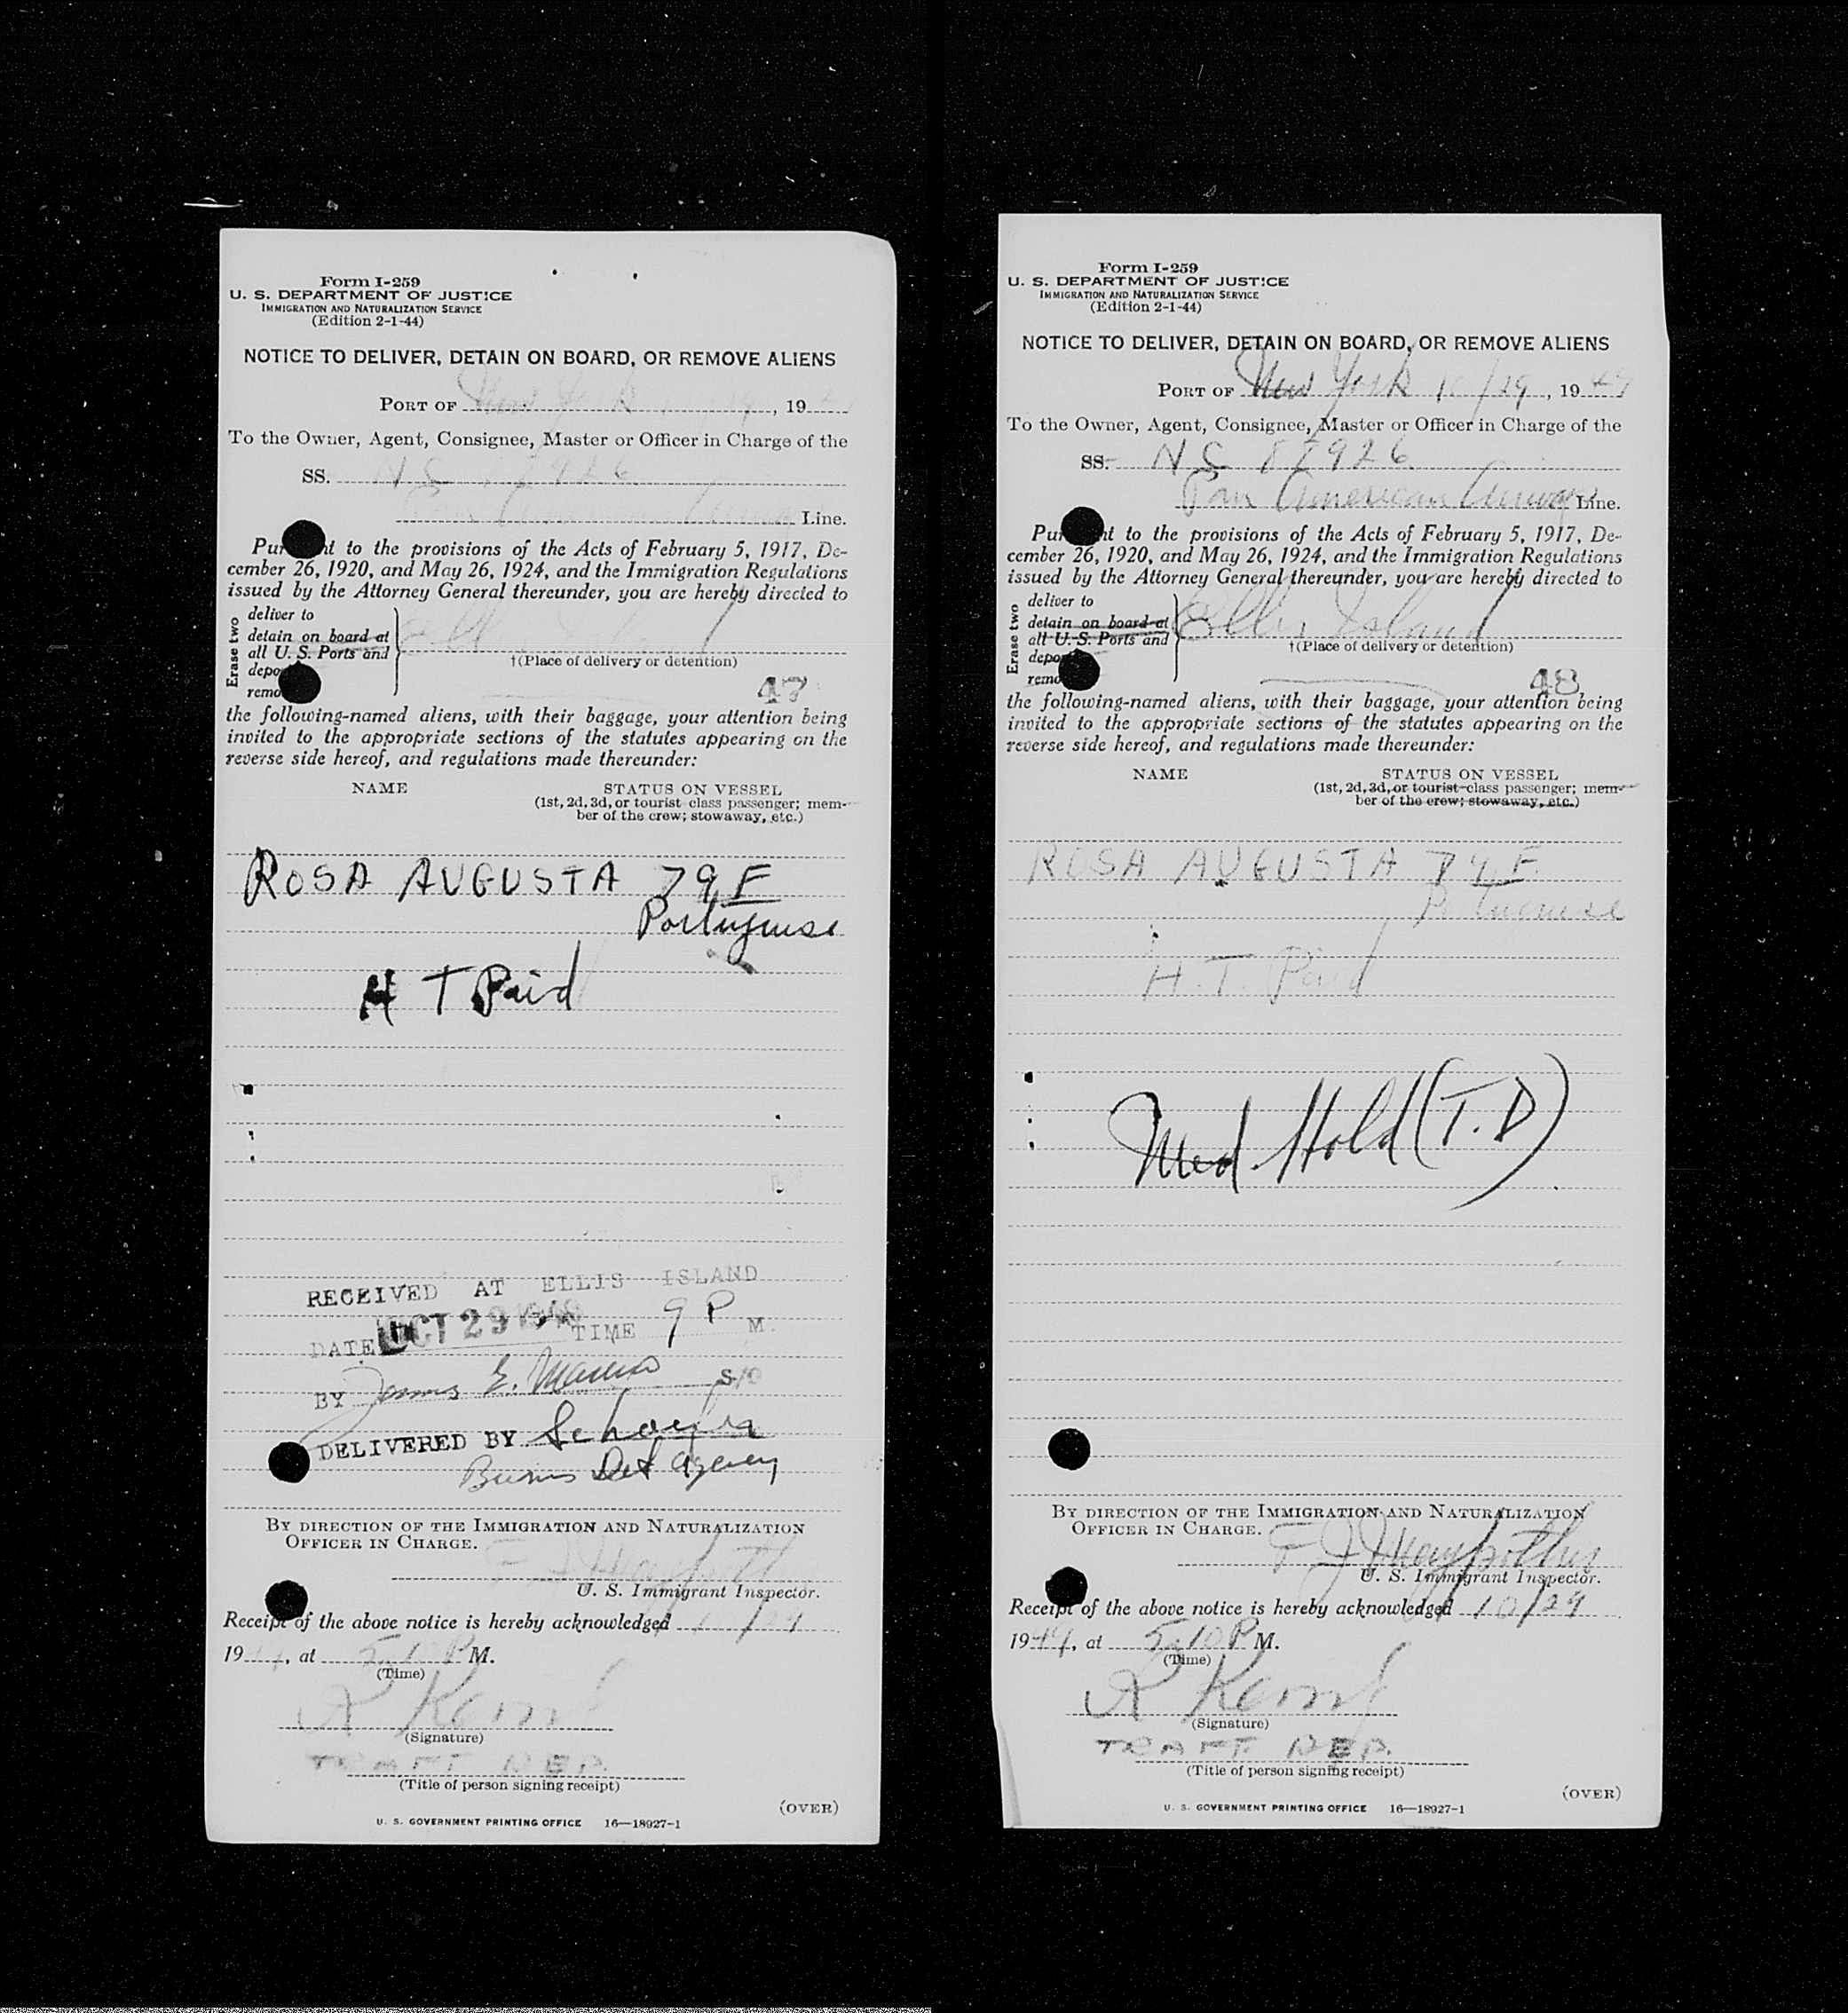 Form I-259
U. S. DEPARTMENT OF JUSTICE
IMMIGRATION AND NATURALIZATION SERVICE
(Edition 2-1-44)
NOTICE TO DELIVER, DETAIN ON BOARD, OR REMOVE ALIENS
PORT OF New York , 19
To the Owner, Agent, Consignee, Master or Officer in Charge of the
SS. N C 7926
Pan American Airways Line.
Pur nt to the provisions of the Acts of February 5, 1917, De-
cember 26, 1920, and May 26, 1924, and the Immigration Regulations
issued by the Attorney General thereunder, you are hereby directed to
Erase two
deliver to
detain on board at
all U. S. Ports and
depo
remo
Ellis Island
†(Place of delivery or detention)
47
the following-named aliens, with their baggage, your attention being
invited to the appropriate sections of the statutes appearing on the
reverse side hereof, and regulations made thereunder:
NAME STATUS ON VESSEL
(1st, 2d, 3d, or tourist class passenger; mem-
ber of the crew; stowaway, etc.)
ROSA AUGUSTA 79 F
Portuguese
H T Paid
RECEIVED AT ELLIS ISLAND
DATE OCT 29 1949 TIME 9 P M.
BY James E.
DELIVERED BY
Burns Det Agency
BY DIRECTION OF THE IMMIGRATION AND NATURALIZATION
OFFICER IN CHARGE.
U. S. Immigrant Inspector.
Receipt of the above notice is hereby acknowledged 10/29
19 49, at 5:10 P M.
(Time)
R Kem
(Signature)
TRAFF REP.
(Title of person signing receipt)
(OVER)
U. S. GOVERNMENT PRINTING OFFICE 16—18927-1
Form I-259
U. S. DEPARTMENT OF JUSTICE
IMMIGRATION AND NATURALIZATION SERVICE
(Edition 2-1-44)
NOTICE TO DELIVER, DETAIN ON BOARD, OR REMOVE ALIENS
PORT OF New York 10/29, 19 49
To the Owner, Agent, Consignee, Master or Officer in Charge of the
SS. N C 87926
Pan American Airways Line.
Pur nt to the provisions of the Acts of February 5, 1917, De-
cember 26, 1920, and May 26, 1924, and the Immigration Regulations
issued by the Attorney General thereunder, you are hereby directed to
Erase two
deliver to
detain on board at
all U. S. Ports and
depo
remo
Ellis Island
†(Place of delivery or detention)
48
the following-named aliens, with their baggage, your attention being
invited to the appropriate sections of the statutes appearing on the
reverse side hereof, and regulations made thereunder:
NAME STATUS ON VESSEL
(1st, 2d, 3d, or tourist class passenger; mem-
ber of the crew; stowaway, etc.)
ROSA AUGUSTA 79 F
Portuguese
H. T. Paid
Med. Hold (T.D)
BY DIRECTION OF THE IMMIGRATION AND NATURALIZATION
OFFICER IN CHARGE.
U. S. Immigrant Inspector.
Receipt of the above notice is hereby acknowledged 10/29
19 49, at 5:10 P M.
(Time)
R Kem
(Signature)
TRAFF. REP.
(Title of person signing receipt)
(OVER)
U. S. GOVERNMENT PRINTING OFFICE 16—18927-1